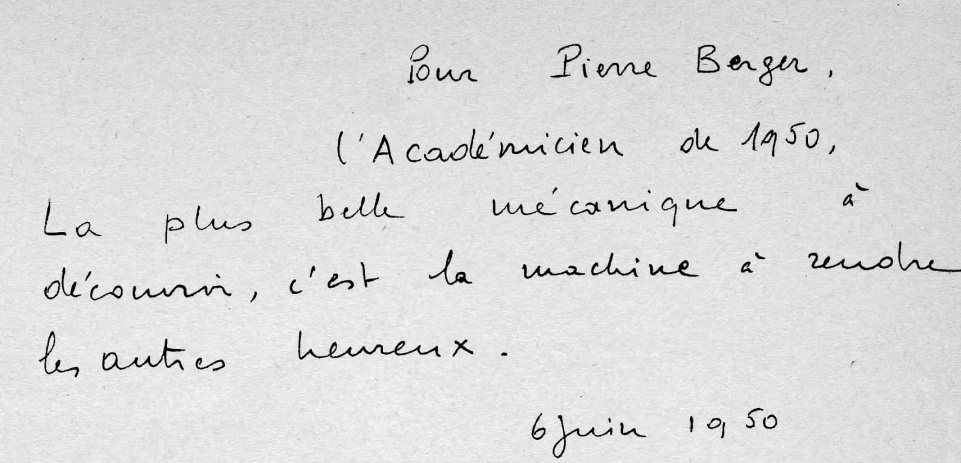 Pour Pierre Berger,
l'Académicien de 1950,
La plus belle mécanique à
découvrir, c'est la machine à rendre
les autres heureux.
6 juin 1950